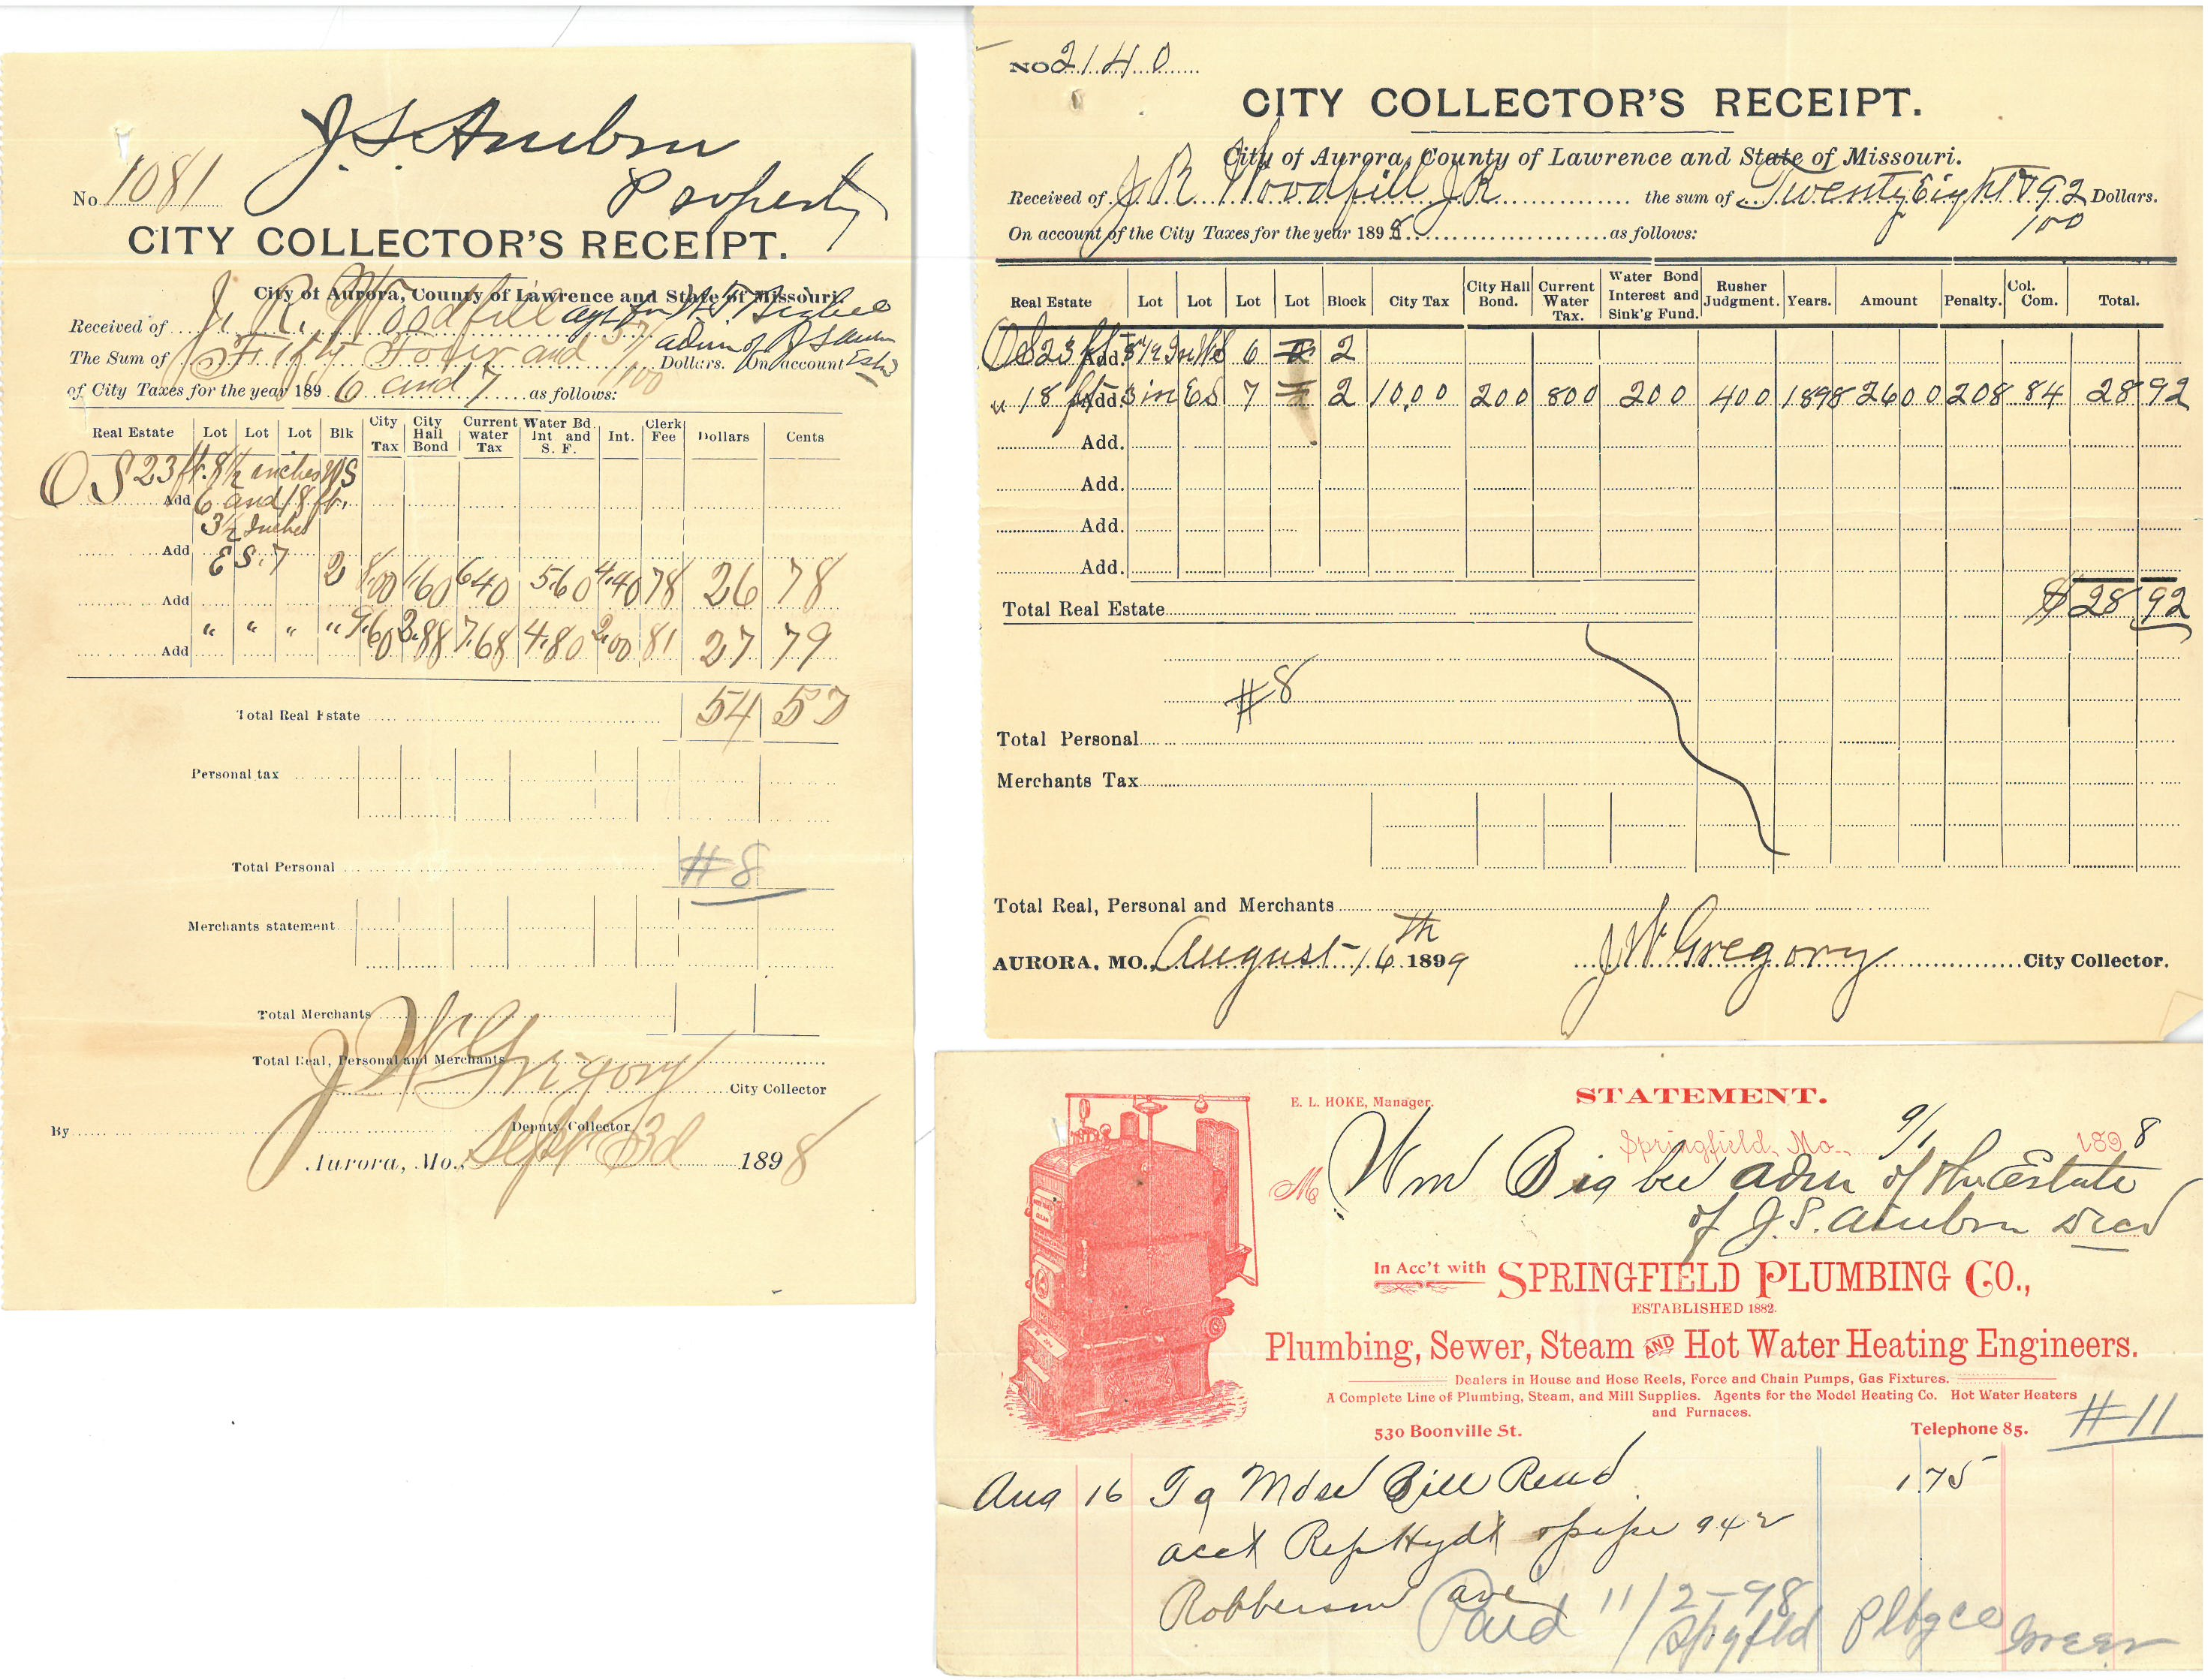 J. S. Ambrn
Property
No. 1081
CITY COLLECTOR'S RECEIPT.
City of Aurora, County of Lawrence and State of Missouri.
Received of J. R. Woodfill agt for W T Bigbee
The Sum of Fifty Four and 57/100 Dollars. On account
adm of J S Est
of City Taxes for the year 1896 and 7 as follows:
Real Estate Lot Lot Lot Blk City Tax City Hall Bond Current water Tax Water Bd. Int and S. F. Int. Clerk Fee Dollars Cents
O S 23 ft. 8 1/2 inches WS
Add 6 and 18 ft.
3 1/2 Inches
Add E S. 7 2 8.00 1.60 6.40 5.60 4.40 78 26 78
Add " " " " 9.60 2.88 7.68 4.80 2.00 81 27 79
Add
Total Real Estate 54 57
Personal tax
Total Personal #8
Merchants statement
Total Merchants
Total Real, Personal and Merchants
J W Gregory City Collector
By Deputy Collector
Aurora, Mo., Sept 3d 1898
NO 2140
CITY COLLECTOR'S RECEIPT.
City of Aurora, County of Lawrence and State of Missouri.
Received of J R Woodfill JR the sum of Twenty Eight & 92/100 Dollars.
On account of the City Taxes for the year 1898 as follows:
Real Estate Lot Lot Lot Lot Block City Tax City Hall Bond. Current Water Tax. Water Bond Interest and Sink'g Fund. Rusher Judgment. Years. Amount Penalty. Col. Com. Total.
OS 23 ft Add. 8 1/2 In WS 6 2
" 18 ft Add. 3 in ES 7 2 10.00 200 800 200 400 1898 2600 208 84 28 92
Add.
Add.
Add.
Add.
Total Real Estate $ 28 92
#8
Total Personal
Merchants Tax
Total Real, Personal and Merchants
AURORA, MO. August 16th 1899 J W Gregory City Collector.
E. L. HOKE, Manager.
STATEMENT.
Springfield, Mo., 9/1 1898
M Wm Bigbee adm of the Estate
of J. S. Ambrn decd
In Acc't with SPRINGFIELD PLUMBING CO.,
ESTABLISHED 1882.
Plumbing, Sewer, Steam AND Hot Water Heating Engineers.
Dealers in House and Hose Reels, Force and Chain Pumps, Gas Fixtures.
A Complete Line of Plumbing, Steam, and Mill Supplies. Agents for the Model Heating Co. Hot Water Heaters
and Furnaces.
530 Boonville St. Telephone 85.
#11
Aug 16 To Mdse Bill Rend 1.75
acct Rep Hydt & pipe 942
Robberson ave
Paid 11/2-98
Spgfld Plbg co